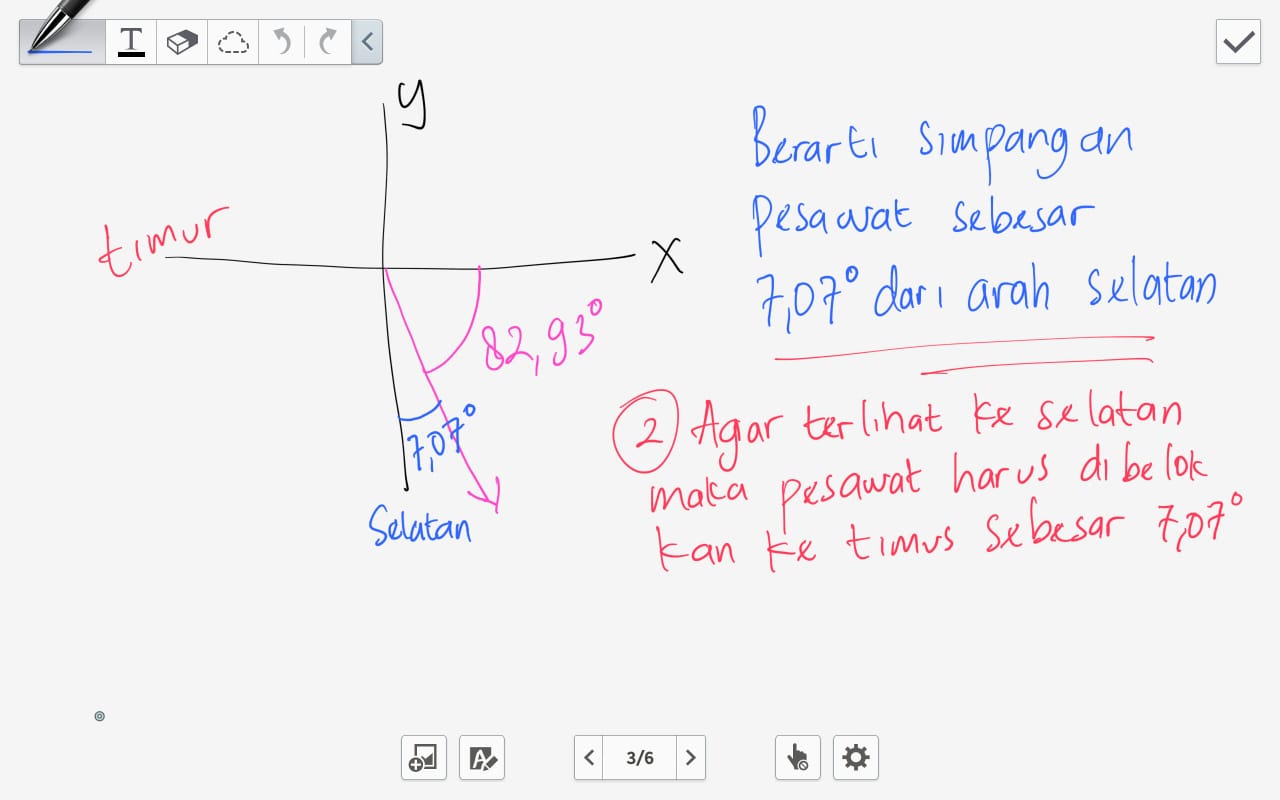 T
y
Berarti simpangan
pesawat sebesar
7,07° dari arah selatan
timur
X
82,93°
7,07°
Selatan
2 Agar terlihat ke selatan
maka pesawat harus dibelok
kan ke timus sebesar 7,07°
A
3/6